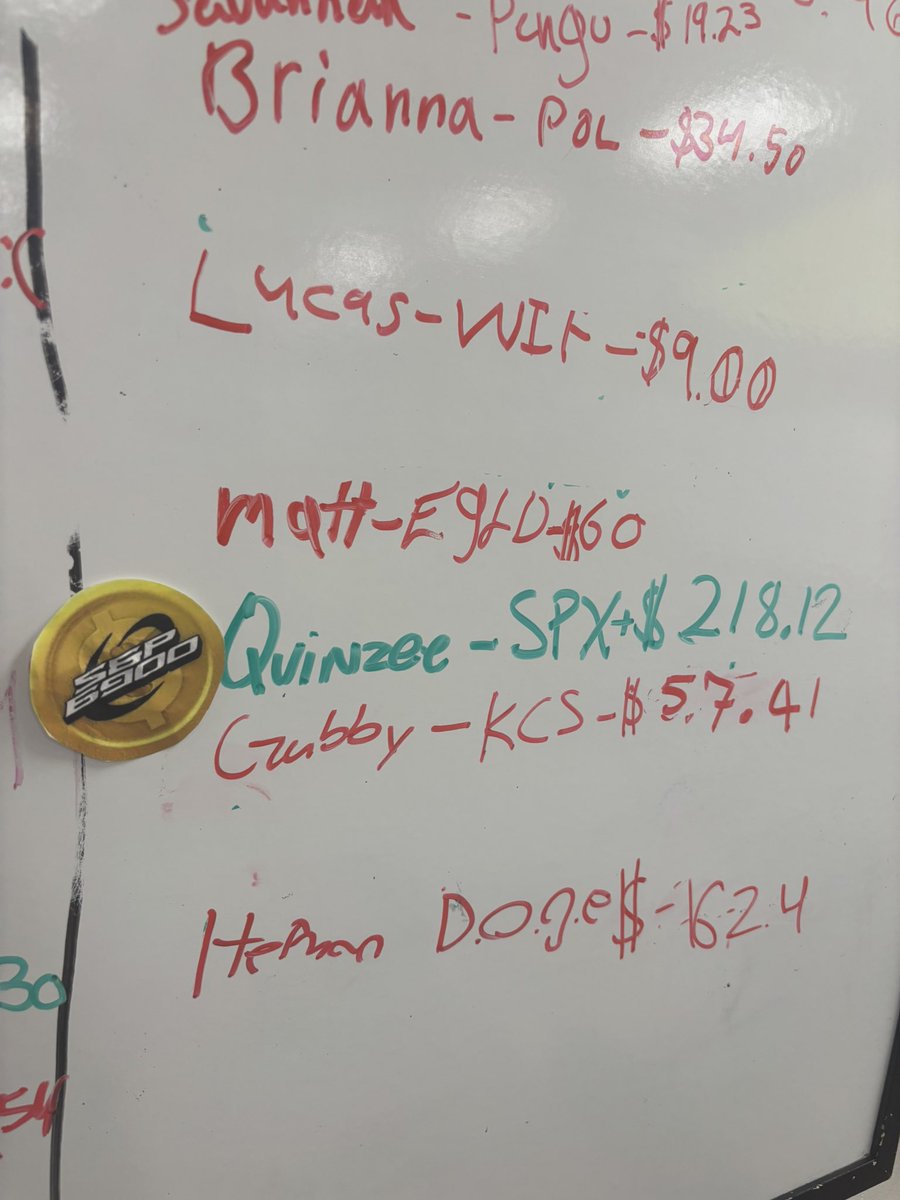 Savannah - Pengu -$ 19.23
Brianna - POL -$34.50
:(
Lucas - WIF -$9.00
Matt - EgLD -$60
SBP
6900
Quinzee - SPX +$ 218.12
Gabby - KCS -$ 57.41
D.O.g.e $ -
30
54